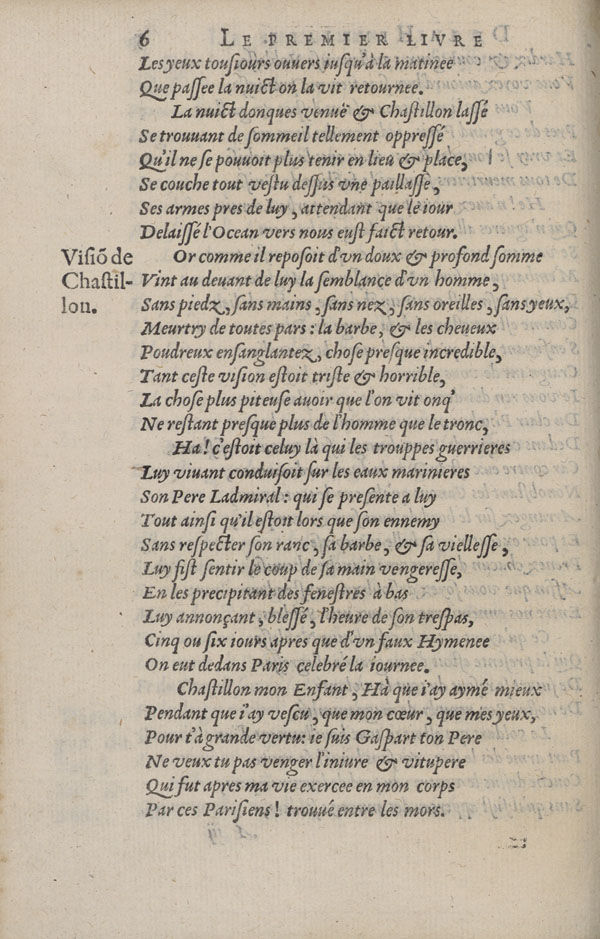 6 LE PREMIER LIVRE
Les yeux tousiours ouuers iusqu'à la matinee
Que passee la nuict on la vit retournee.
La nuict donques venuë & Chastillon lassé
Se trouuant de sommeil tellement oppressé
Qu'il ne se pouuoit plus tenir en lieu & place,
Se couche tout vestu dessus vne paillasse,
Ses armes pres de luy, attendant que le iour
Delaissé l'Ocean vers nous eust faict retour.
Visiõ de
Chastil-
lon.
Or comme il reposoit d'vn doux & profond somme
Vint au deuant de luy la semblance d'vn homme,
Sans piedz, sans mains, sans nez, sans oreilles, sans yeux,
Meurtry de toutes pars: la barbe, & les cheueux
Poudreux ensanglantez, chose presque incredible,
Tant ceste vision estoit triste & horrible,
La chose plus piteuse auoir que l'on vit onq'
Ne restant presque plus de l'homme que le tronc,
Ha! c'estoit celuy là qui les trouppes guerrieres
Luy viuant conduisoit sur les eaux marinieres
Son Pere Ladmiral: qui se presente a luy
Tout ainsi qu'il estoit lors que son ennemy
Sans respecter son ranc, sa barbe, & sa viellesse,
Luy fist sentir le coup de sa main vengeresse,
En les precipitant des fenestres à bas
Luy annonçant, blessé, l'heure de son trespas,
Cinq ou six iours apres que d'vn faux Hymenee
On eut dedans Paris celebré la iournee.
Chastillon mon Enfant, Hà que i'ay aymé mieux
Pendant que i'ay vescu, que mon cœur, que mes yeux,
Pour t'à grande vertu: ie suis Gaspart ton Pere
Ne veux tu pas venger l'iniure & vitupere
Qui fut apres ma vie exercee en mon corps
Par ces Parisiens! trouué entre les mors.